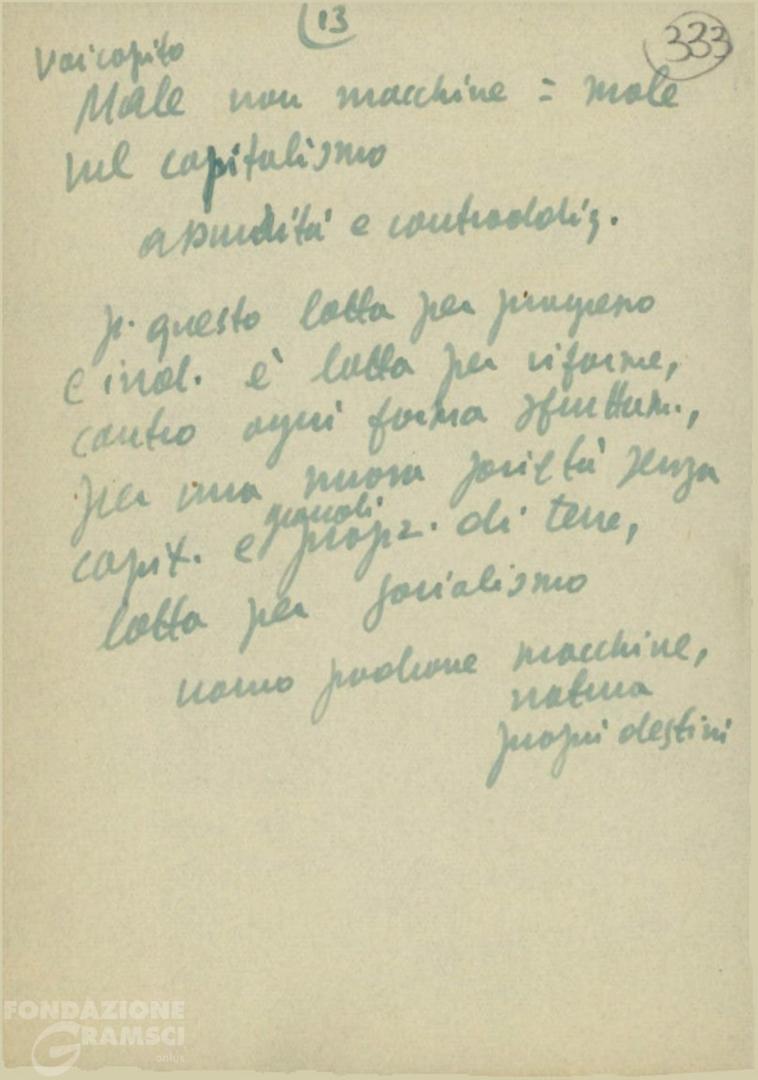 13
333
Voi capito
Male non macchine = male
nel capitalismo
assurdità e contraddiz.
p. questo lotta per progresso
e ind. è lotta per riforme,
contro ogni forma sfruttam.,
per una nuova società senza
capit. e grandi propr. di terre,
lotta per socialismo
uomo padrone macchine,
natura
propri destini
FONDAZIONE
GRAMSCI
onlus